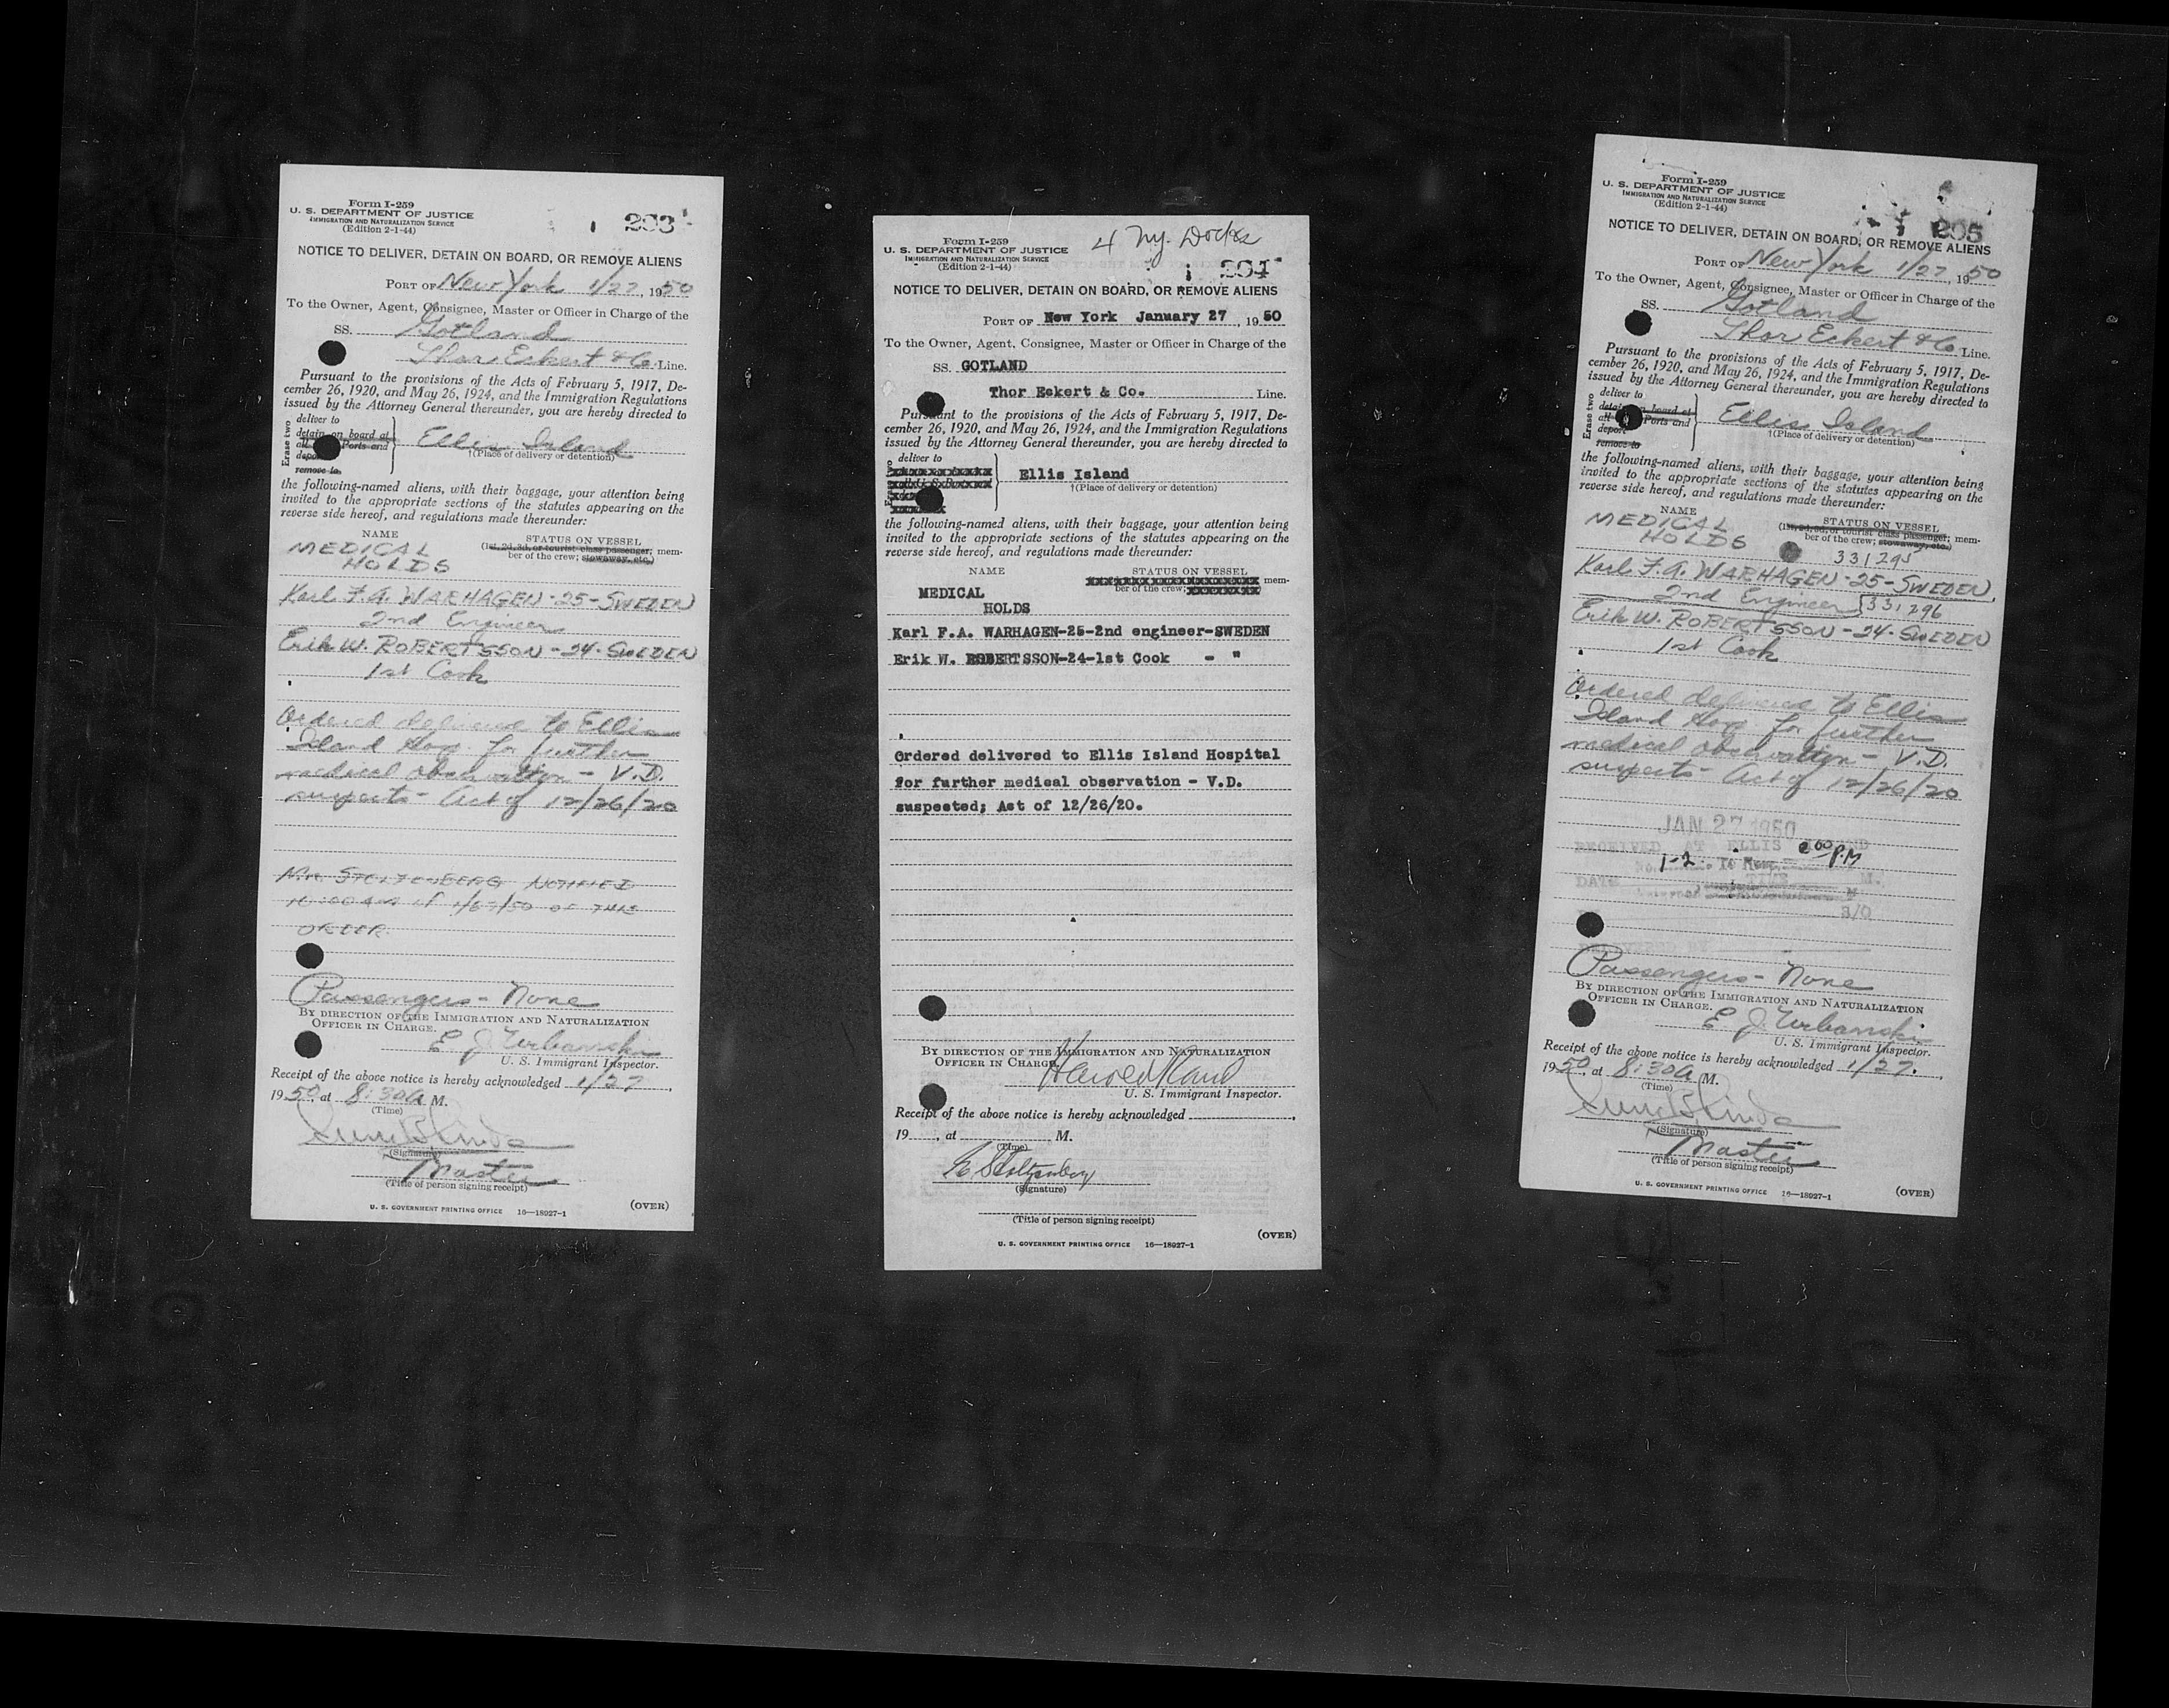 Form I-259
U. S. DEPARTMENT OF JUSTICE
IMMIGRATION AND NATURALIZATION SERVICE
(Edition 2-1-44)
293
NOTICE TO DELIVER, DETAIN ON BOARD, OR REMOVE ALIENS
PORT OF New York 1/27, 1950
To the Owner, Agent, Consignee, Master or Officer in Charge of the
SS. Gotland
Thor Eckert & Co. Line.
Pursuant to the provisions of the Acts of February 5, 1917, De-
cember 26, 1920, and May 26, 1924, and the Immigration Regulations
issued by the Attorney General thereunder, you are hereby directed to
Erase two
deliver to
detain on board at
all Ports and
remove to
Ellis Island
†(Place of delivery or detention)
the following-named aliens, with their baggage, your attention being
invited to the appropriate sections of the statutes appearing on the
reverse side hereof, and regulations made thereunder:
NAME
STATUS ON VESSEL
(1st, 2d, 3d, or tourist class passenger; mem-
ber of the crew; stowaway, etc.)
MEDICAL
HOLDS
Karl F. A. WARHAGEN - 25 - SWEDEN
2nd Engineer
Erik W. ROBERTSSON - 24 - SWEDEN
1st Cook
Ordered delivered to Ellis
Island Hosp. for further
medical observation - V.D.
suspects - Act of 12/26/20
Mr. STOLTENBERG NOTIFIED
OF THIS
ORDER.
Passengers - None
BY DIRECTION OF THE IMMIGRATION AND NATURALIZATION
OFFICER IN CHARGE.
E J Urbanski
U. S. Immigrant Inspector.
Receipt of the above notice is hereby acknowledged 1/27,
1950, at 8:30A M.
(Time)
(Signature)
Master
(Title of person signing receipt)
U. S. GOVERNMENT PRINTING OFFICE 16—18927-1
(OVER)
Form I-259
U. S. DEPARTMENT OF JUSTICE
IMMIGRATION AND NATURALIZATION SERVICE
(Edition 2-1-44)
4 Ny. Docks
294
NOTICE TO DELIVER, DETAIN ON BOARD, OR REMOVE ALIENS
PORT OF New York January 27, 1950
To the Owner, Agent, Consignee, Master or Officer in Charge of the
SS. GOTLAND
Thor Eckert & Co. Line.
Pursuant to the provisions of the Acts of February 5, 1917, De-
cember 26, 1920, and May 26, 1924, and the Immigration Regulations
issued by the Attorney General thereunder, you are hereby directed to
deliver to
Ellis Island
†(Place of delivery or detention)
the following-named aliens, with their baggage, your attention being
invited to the appropriate sections of the statutes appearing on the
reverse side hereof, and regulations made thereunder:
NAME
STATUS ON VESSEL
mem-
ber of the crew;
MEDICAL
HOLDS
Karl F.A. WARHAGEN-25-2nd engineer-SWEDEN
Erik W. ROBERTSSON-24-1st Cook - "
Ordered delivered to Ellis Island Hospital
for further medical observation - V.D.
suspected; Act of 12/26/20.
BY DIRECTION OF THE IMMIGRATION AND NATURALIZATION
OFFICER IN CHARGE.
U. S. Immigrant Inspector.
Receipt of the above notice is hereby acknowledged
19 , at M.
(Time)
(Signature)
(Title of person signing receipt)
U. S. GOVERNMENT PRINTING OFFICE 16—18927-1
(OVER)
Form I-259
U. S. DEPARTMENT OF JUSTICE
IMMIGRATION AND NATURALIZATION SERVICE
(Edition 2-1-44)
295
NOTICE TO DELIVER, DETAIN ON BOARD, OR REMOVE ALIENS
PORT OF New York 1/27, 1950
To the Owner, Agent, Consignee, Master or Officer in Charge of the
SS. Gotland
Thor Eckert & Co Line.
Pursuant to the provisions of the Acts of February 5, 1917, De-
cember 26, 1920, and May 26, 1924, and the Immigration Regulations
issued by the Attorney General thereunder, you are hereby directed to
Erase two
deliver to
detain on board at
all Ports and
deport
remove to
Ellis Island
†(Place of delivery or detention)
the following-named aliens, with their baggage, your attention being
invited to the appropriate sections of the statutes appearing on the
reverse side hereof, and regulations made thereunder:
NAME
STATUS ON VESSEL
(1st, 2d, 3d, or tourist class passenger; mem-
ber of the crew; stowaway, etc.)
MEDICAL
HOLDS
331295
Karl F. A. WARHAGEN - 25 - SWEDEN,
2nd Engineer 331296
Erik W. ROBERTSSON - 24 - SWEDEN
1st Cook
Ordered delivered to Ellis
Island Hosp. for further
medical observation - V.D.
suspects - Act of 12/26/20
JAN 27 1950
RECEIVED AT ELLIS ISLAND
P.M
DATE TIME M.
DELIVERED BY
Passengers - None
BY DIRECTION OF THE IMMIGRATION AND NATURALIZATION
OFFICER IN CHARGE.
E J Urbanski
U. S. Immigrant Inspector.
Receipt of the above notice is hereby acknowledged 1/27,
1950, at 8:30A M.
(Time)
(Signature)
Master
(Title of person signing receipt)
U. S. GOVERNMENT PRINTING OFFICE 16—18927-1
(OVER)